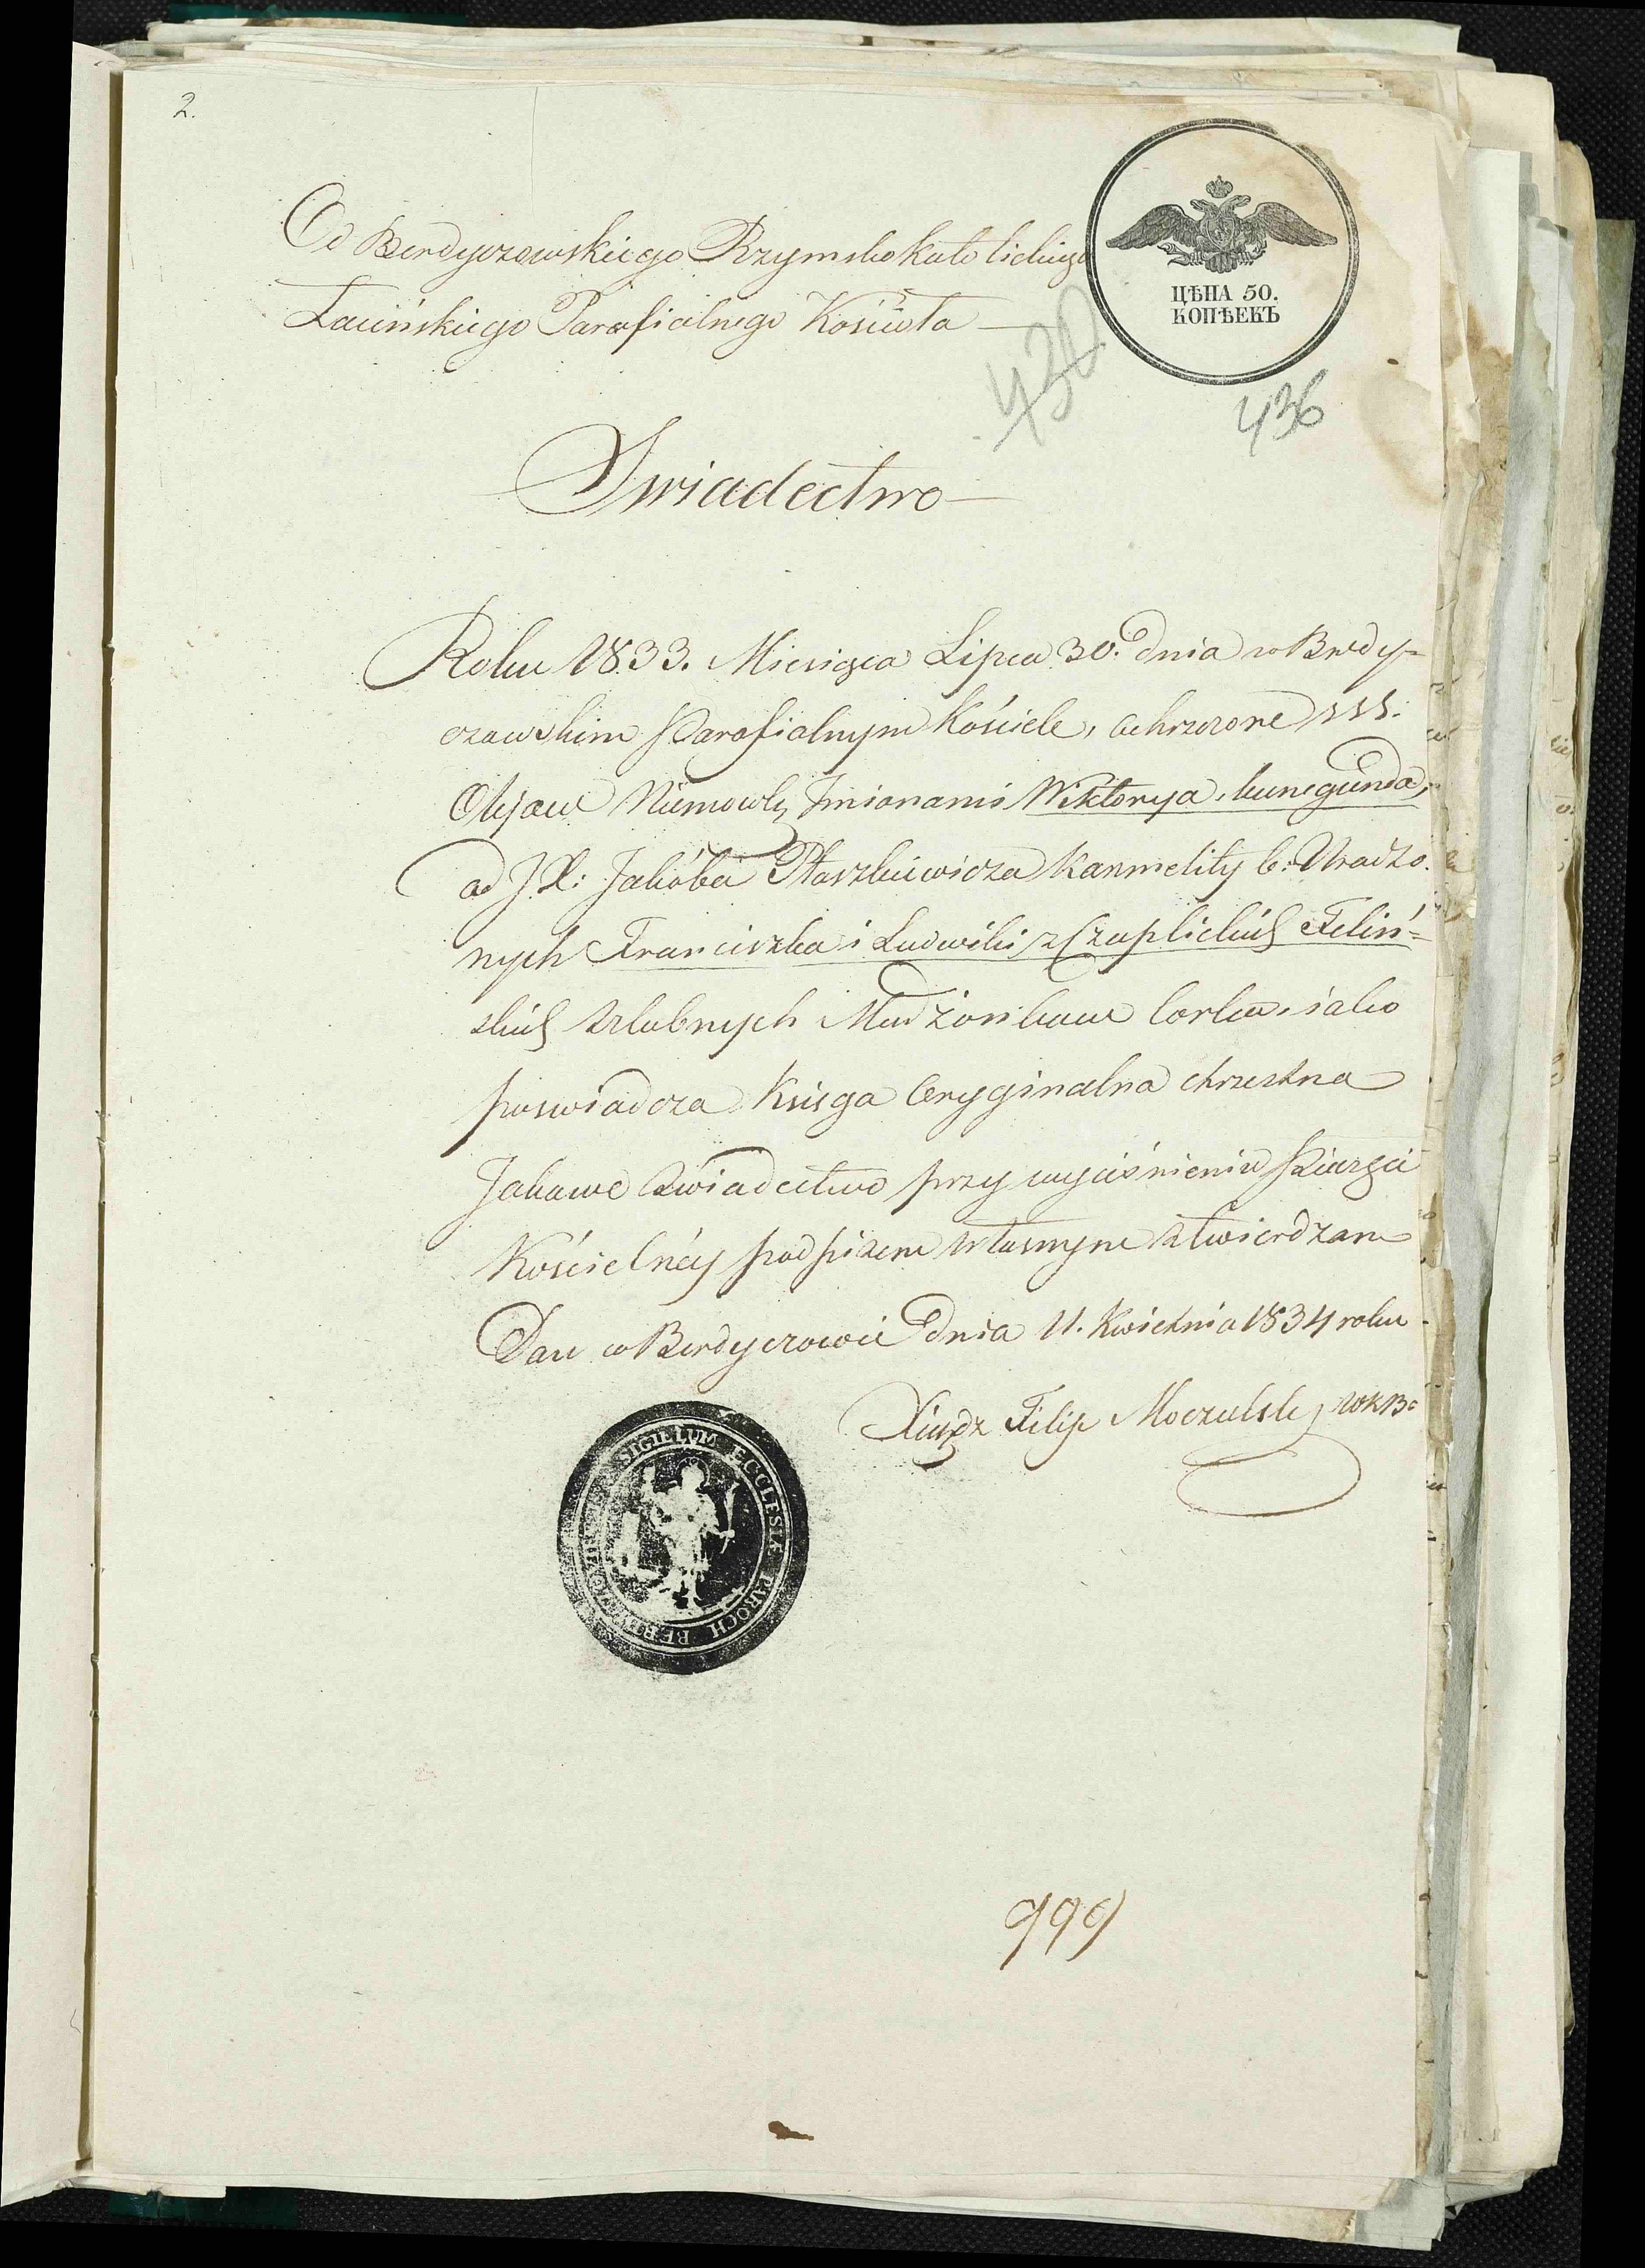 2.
Od Berdyczowskiego Rzymskokatolickiego
Łacińskiego Parafialnego Kościoła —
ЦѢНА 50.
КОПѢЕКЪ
430
436
Swiadectwo —
Roku 1833. Miesiąca Lipca 30. dnia w Berdy-
czowskim Parafialnym Kościele, ochrzczone SSS.
Olejami Niemowlę Imionami Wiktorya, Kunegunda,
od J.X: Jakóba Ptaszkiewicza Karmelity b: Urodzo.
nych Franciszka i Ludwiki z Czaplickich Feliń=
skich Szlubnych Małżonków Corka, iako
poswiadcza Księga Oryginalna chrzestna
Jakowe Swiadectwo przy wyciśnieniu Pieczęci
Kościelnéy podpisem własnym stwierdzam
Dan w Berdyczowie Dnia 11. Kwietnia 1834 roku
Xiądz Filip Moczulski WKB:
SIGILLUM ECCLESIÆ PAROCH
999